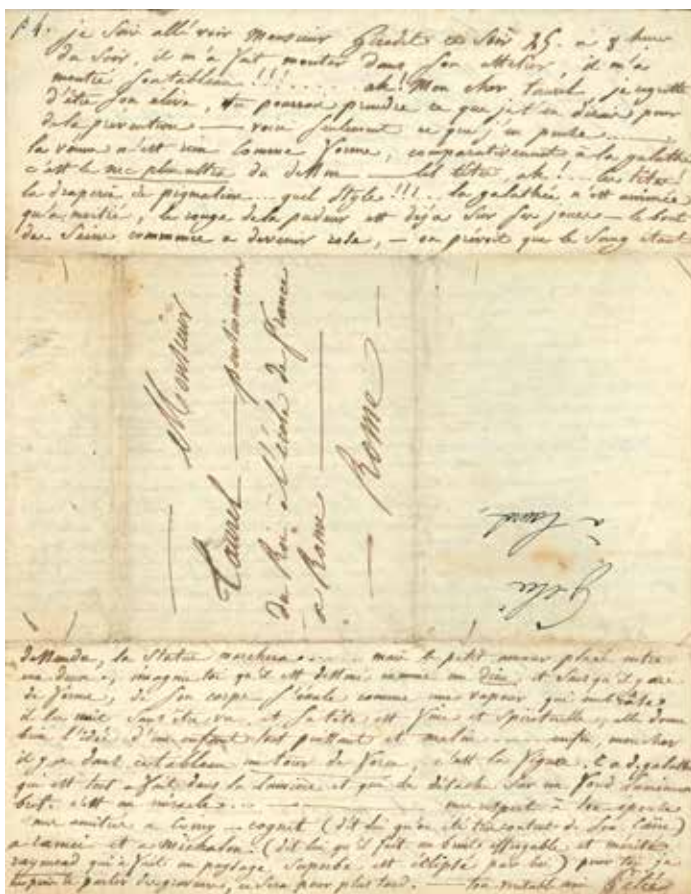 p 4. je suis allé voir monsieur Girodet ce soir 25. a 8 heure
du soir, il m'a fait monter dans son attelier, il m'a
montré son tableau !!!...... ah! Mon cher taurel je regrette
d'être son eleve, tu pourras prendre ce que je t'en dirai pour
de la prevention — voici seulement ce que j'en pense......
la venus n'est rien comme forme, comparativement à la galathée
c'est le nec plus ultra du dessin — les têtes, ah!... les têtes!
la draperie de pigmalion... quel style!!!... la galathée n'est animée
qu'a moitié, le rouge de la pudeur est deja sur ses joues — le bout
du Seine commence a devenir rose, — on prévoit que le Sang étant
Monsieur
Taurel pensionnaire
du Roi à l'école de france
a Rome
Rome
à taurel
dessendu, la Statue marchera..... mais le petit amour placé entre
eux deux, imagine toi qu'il est dessiné comme un dieu, et
de forme, de son corps s'exale comme une vapeur qui
il les unit sans etre vu, et sa tête est fine et spirituelle, elle donne
bien l'idée d'un enfant tout puissant et malin — enfin, mon cher
il y a dans ce tableau un tour de force, c'est la figure. C. a. d. galathée
qui est tout a fait dans la lumière et qui se détache sur un fond lumineux
bref c'est un miracle... mes respect à ton epouse
mes amitiés a Cogniet (dit lui qu'on été très content de son Caïn)
a ramei et a michalon. (dit lui qu'il fait un bruit effroyable et merité
raymond qui a fait un paysage superbe est éclipsé par lui) pour toi
parler de gravure, ce sera pour plus tard. — ton